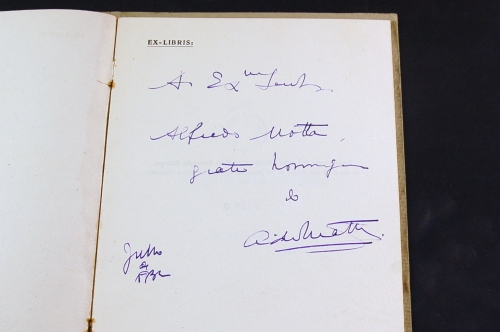 EX-LIBRIS:
Ao Ex.mo Senhor
Alfredo Motta,
grata homenagem
de
Julho
de